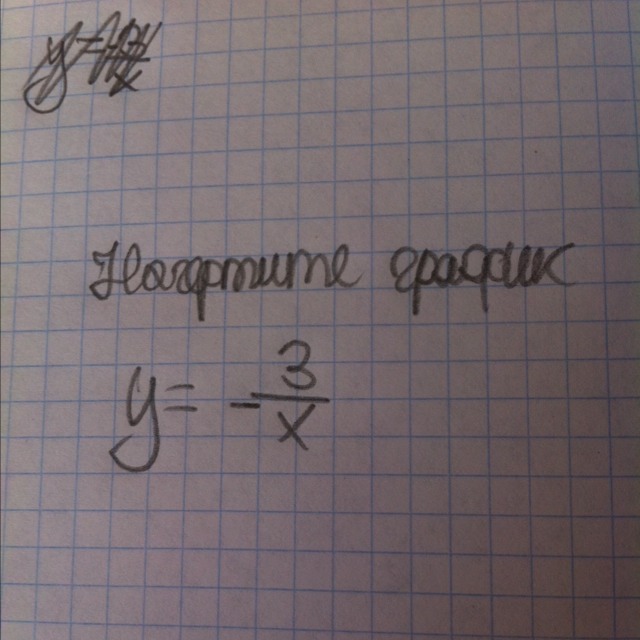 y=
Начертите график
y = - 3/x